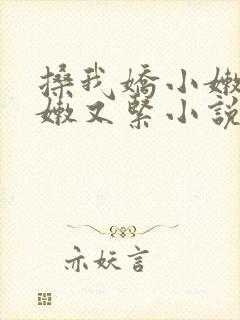 搡我嬌小嫩
嫩又緊小說
亦妖言